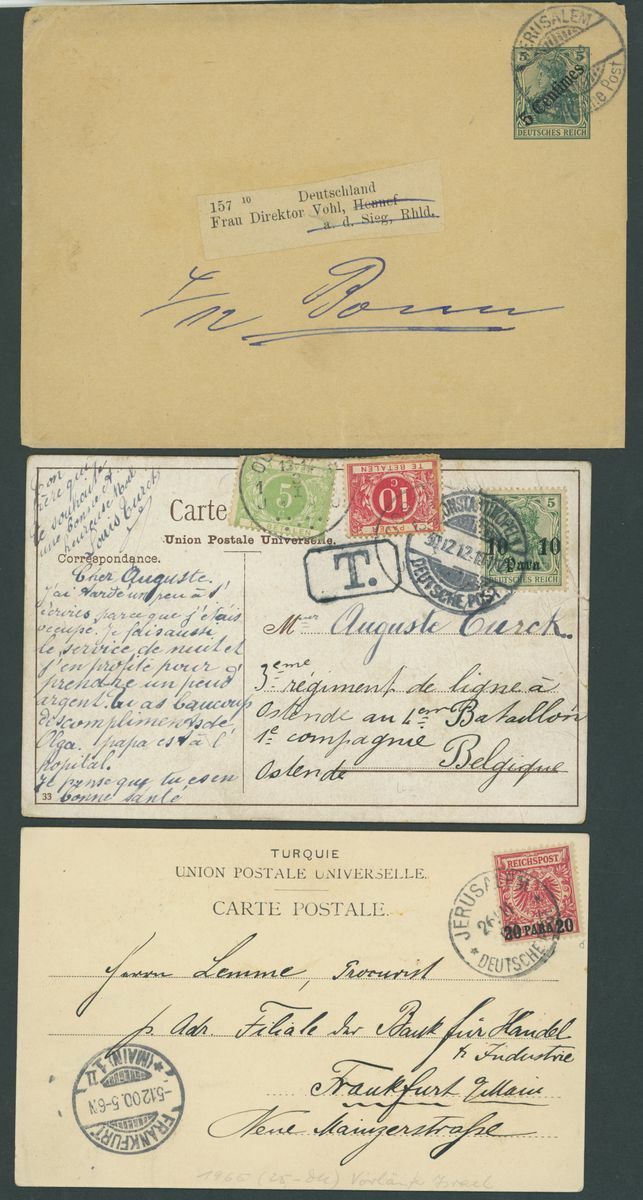 JERUSALEM
Deutsche Post
5
5
5 Centimes
DEUTSCHES REICH
157 10 Deutschland
Frau Direktor Vohl, Hennef
a. d. Sieg, Rhld.
Bonn
bonne et
heureuse
Louis Curck
Carte
Union Postale Universelle.
5
10
TE BETALEN
A PAYER
CONSTANTINOPEL
30.12.12
DEUTSCHE POST
5
10 10
Para
DEUTSCHES REICH
T.
Correspondance.
Cher Auguste.
J'ai tardé un peu à t'
écrires parce que j'étais
occupé. Je faisaussi
le service de nuit et
j'en profite pour
prendre un peu d'
argent. Tu as beaucoup
des compliments de
Olga. papa est à l'
hopital.
Je pense que tu es en
bonne santé
33
Meur Auguste Curck.
3eme régiment de ligne à
Ostende au 4em Bataillon
1e compagnie
Ostende Belgique
TURQUIE
UNION POSTALE UNIVERSELLE.
CARTE POSTALE.
REICHSPOST
20 PARA 20
JERUSALEM
DEUTSCHE
Herrn Lemme, Procurist
p. Adr. Filiale der Bank für Handel
& Industrie
Frankfurt a/Main
Neue Mainzerstraße
FRANKFURT
(MAIN) 1
-5.12.00.5-6N
Vorläufer Israel